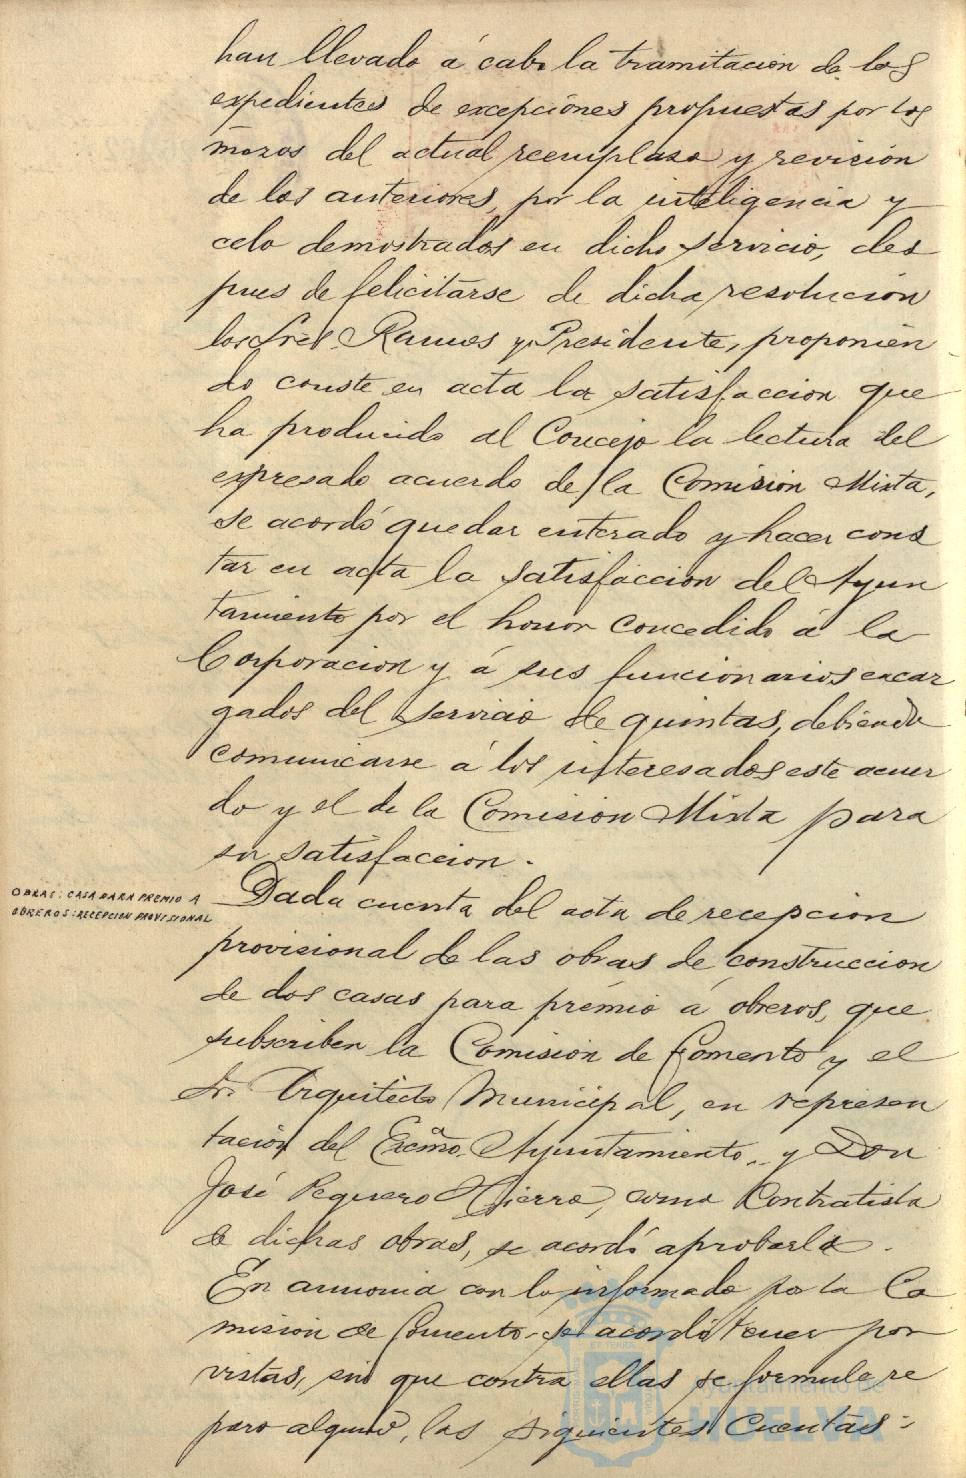 han llevado á cabo la tramitación de los
expedientes de excepciones propuestas por los
mozos del actual reemplazo y revisión
de los anteriores, por la inteligencia y
celo demostrados en dicho servicio, des
pues de felicitarse de dicha resolución
los Sres. Ramos y Presidente, proponien
do conste en acta la satisfaccion que
ha producido al Concejo la lectura del
expresado acuerdo de la Comisión Mixta,
se acordó quedar enterado y hacer cons
tar en acta la satisfaccion del Ayun
tamiento por el honor concedido á la
Corporacion y á sus funcionarios encar
gados del servicio de quintas, debiendo
comunicarse á los interesados este acuer
do y el de la Comision Mixta para
su satisfaccion.
OBRAS: CASA PARA PREMIO A
OBREROS: RECEPCION PROVISIONAL
Dada cuenta del acta de recepcion
provisional de las obras de construccion
de dos casas para premio á obreros, que
subscriben la Comisión de Fomento y el
Sr. Arquitecto Municipal, en represen
tación del Excmo. Ayuntamiento, y Don
José Peguero Hierro, como Contratista
de dichas obras, se acordó aprobarla.
En armonia con lo informado por la Co
misión de Fomento se acordó tener por
vistas, sin que contra ellas se formule re
paro alguno, las siguientes cuentas:
Ayuntamiento de
HUELVA